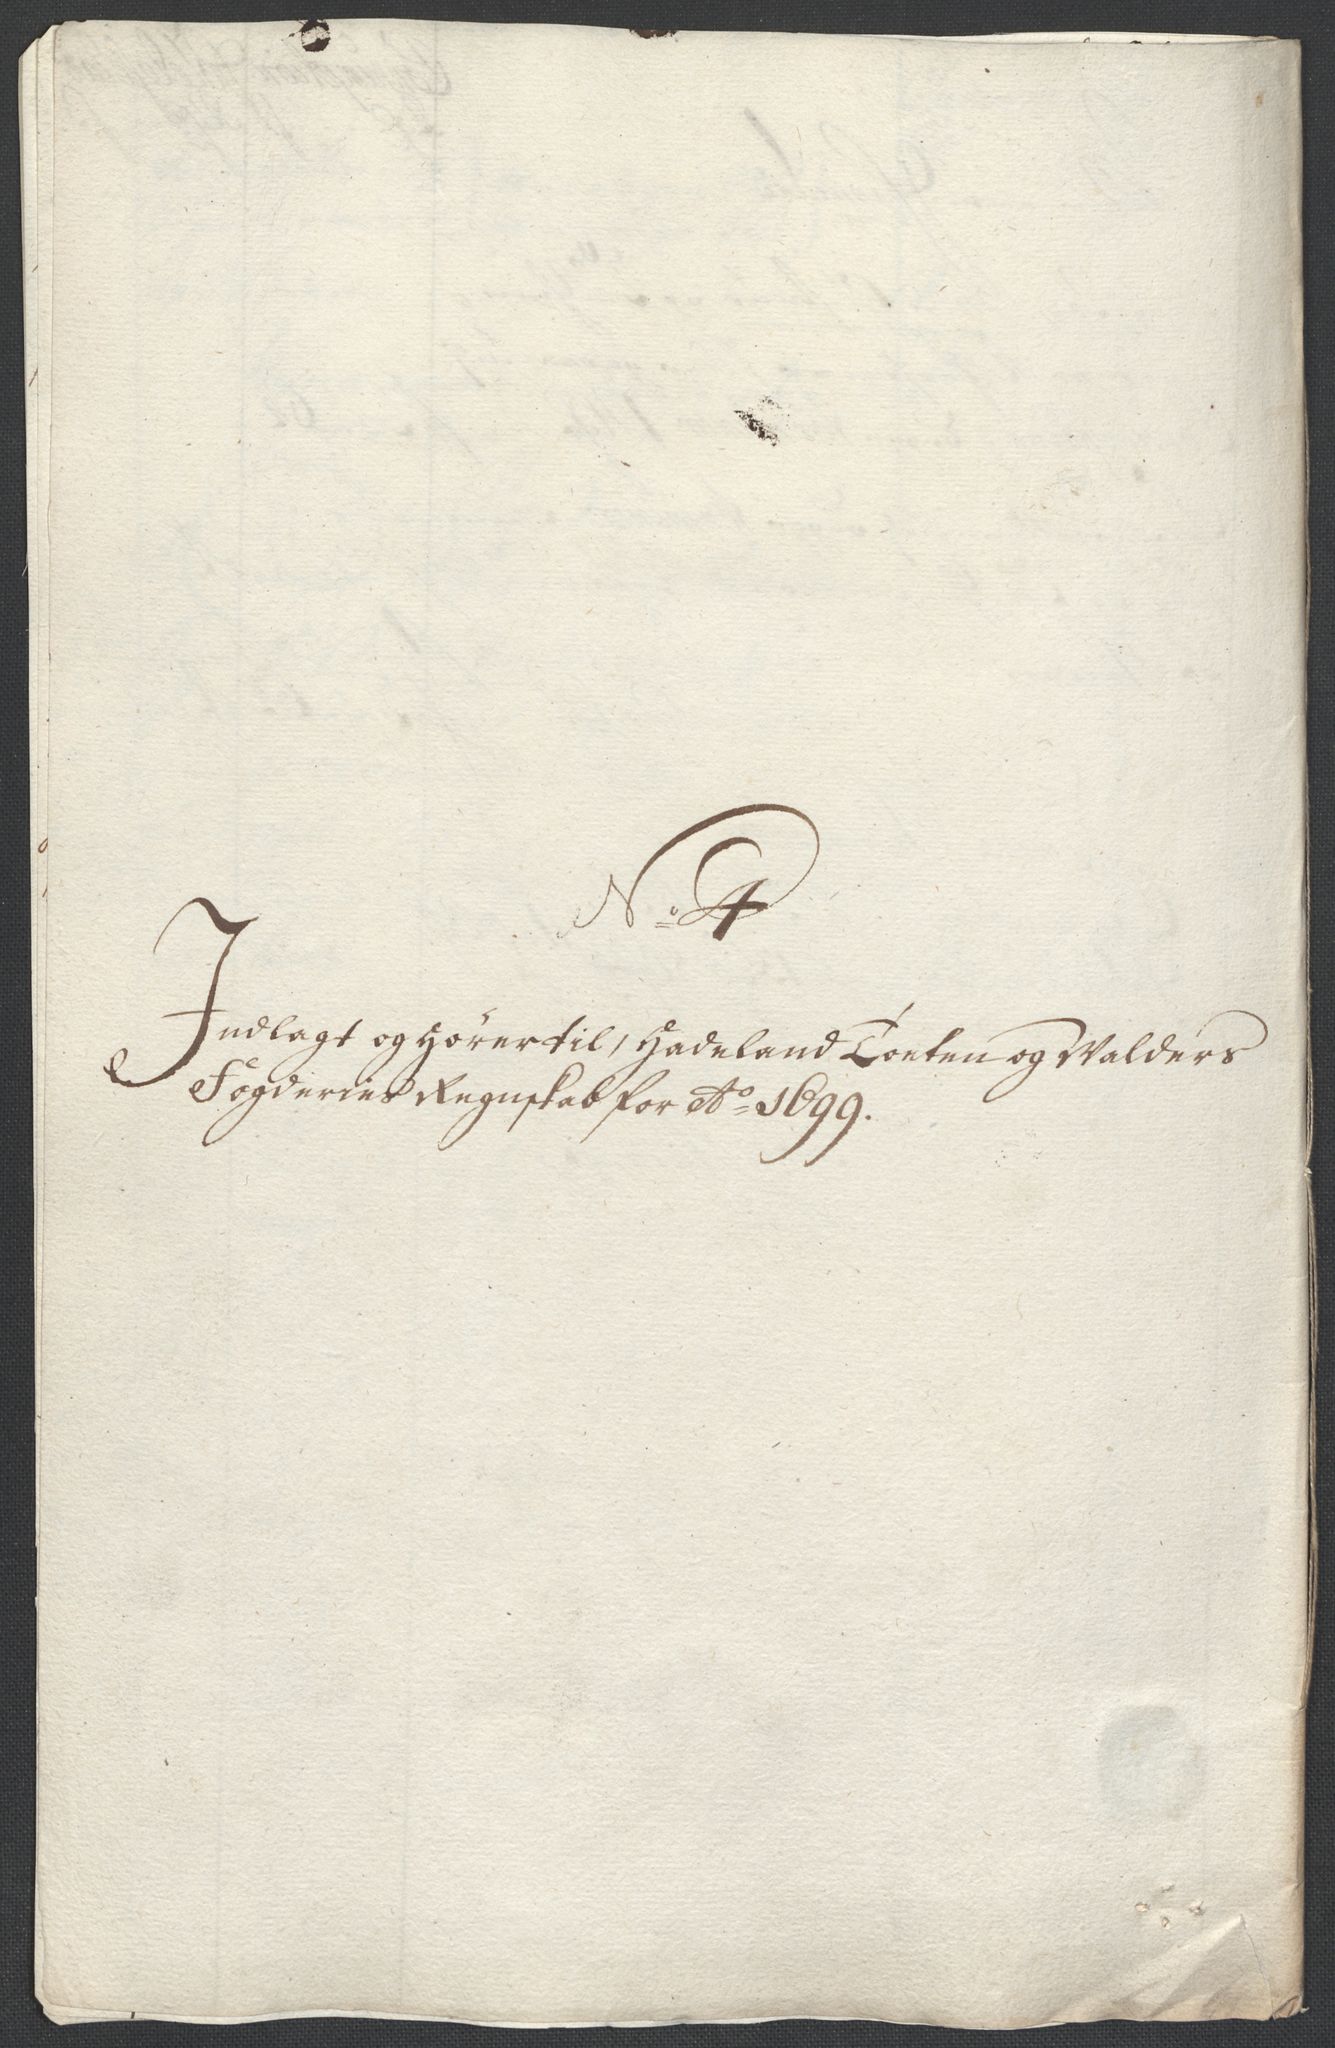 No 4
Indlagt og hörer til, Hadeland Toeten og Walders
Fogderies Regnskab for Ao 1699.